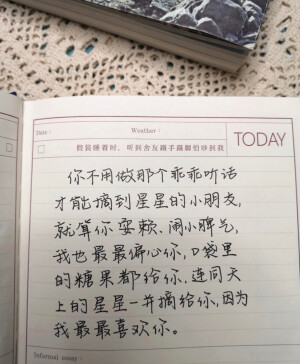 Date:
Weather:
TODAY
假装睡着时,听到舍友蹑手蹑脚怕吵到我
你不用做那个乖乖听话
才能摘到星星的小朋友,
就算你耍赖、闹小脾气,
我也最最偏心你,口袋里
的糖果都给你,连同天
上的星星一并摘给你,因为
我最最喜欢你。
Informal essay: